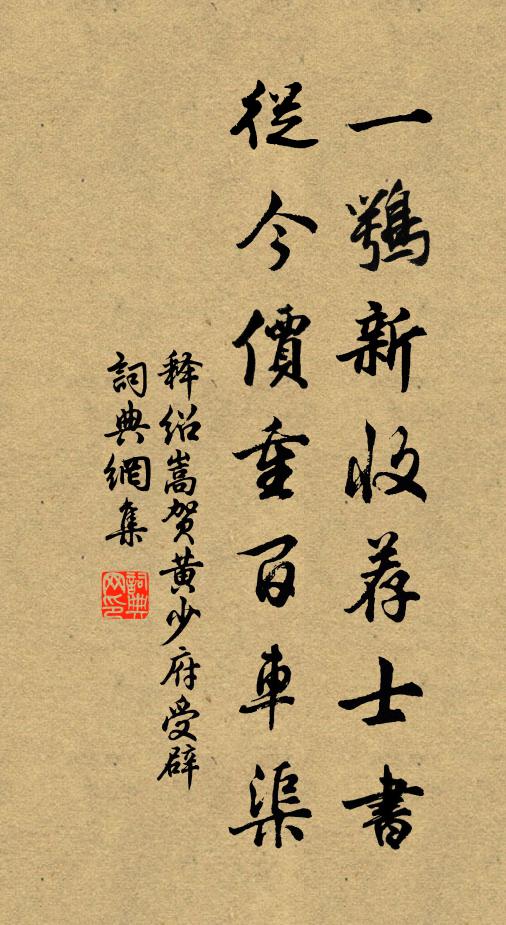 一鶚新收荐士書
從今價重百車渠
释绍嵩贺黄少府受辟
詞典網集
詞典网印